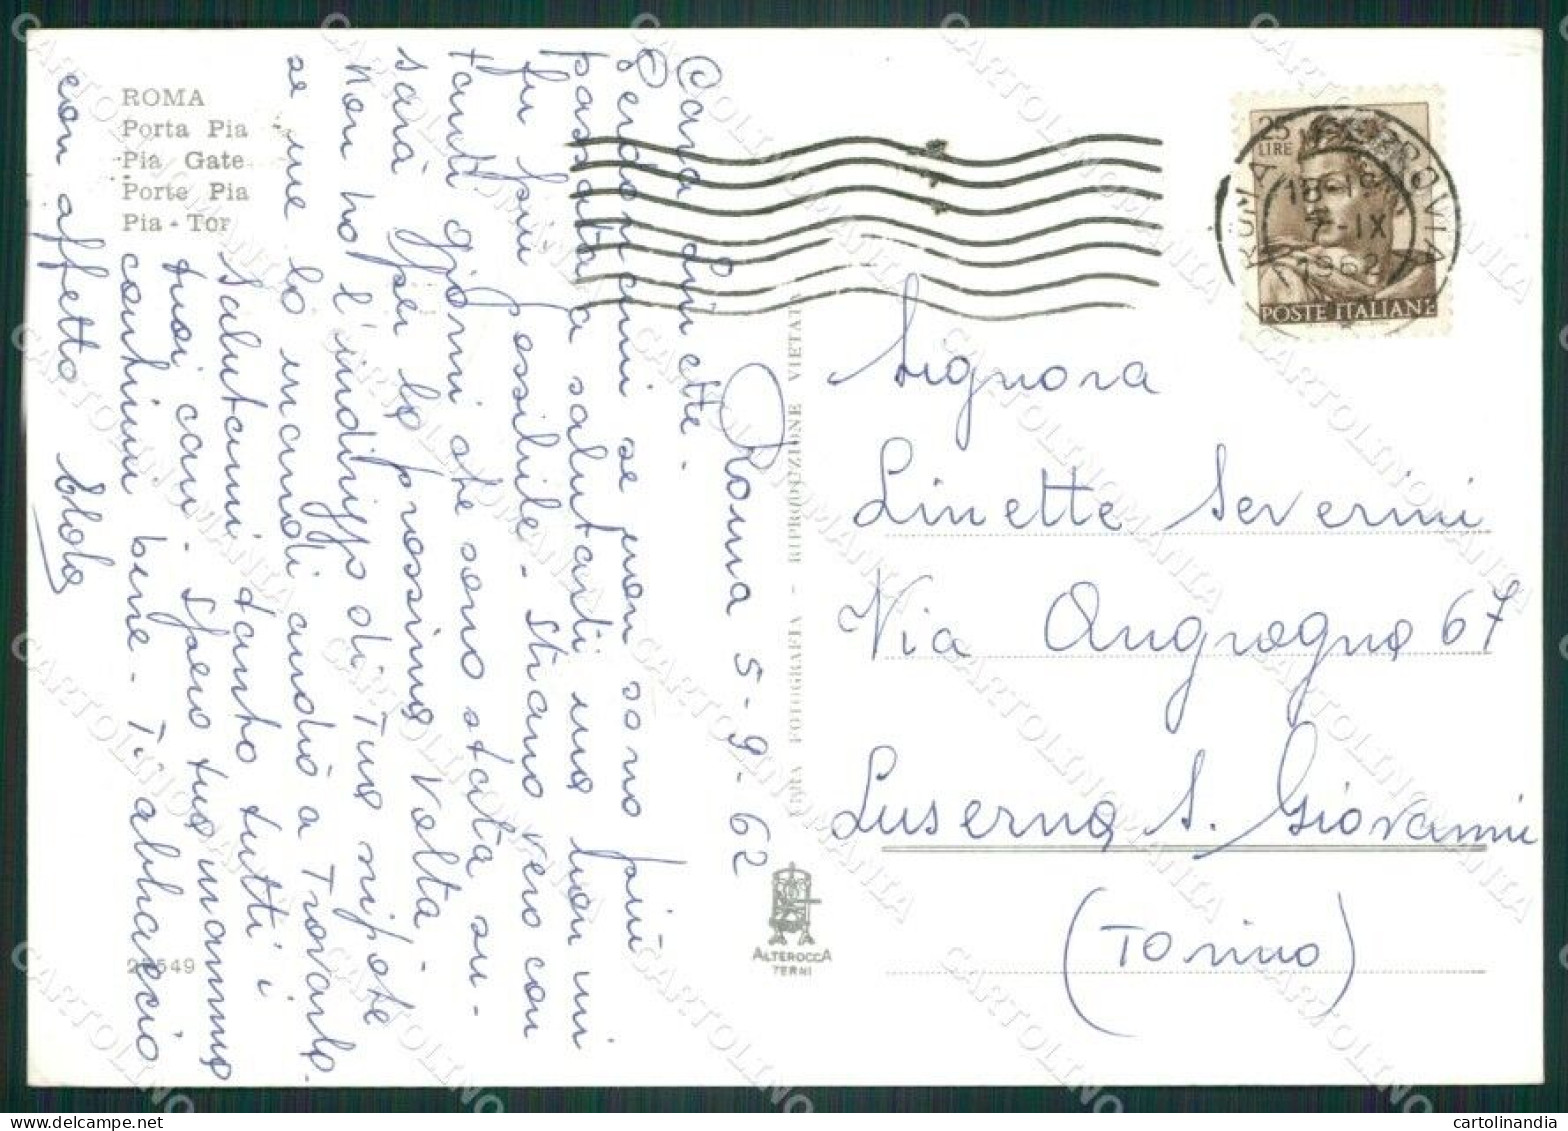 ROMA
Porta Pia
Pia Gate
Porte Pia
Pia - Tor
Roma 5-9-62
Cara Linette.
Perdonami se non sono più
passata a salutarti ma non mi
fu più possibile. Strano vero con
tanti giorni che sono stata su-
sarà per la prossima volta.
Non ho l'indirizzo di Tuo nipote
se me lo mandi andrò a Trovarlo.
Salutami tanto tutti i
tuoi cari. Spero tua mamma
continui bene. Ti abbraccio
con affetto
25 LIRE
POSTE ITALIANE
ROMA FERROVIA
18
7-IX
1962
Signora
Linette Severini
Via Angrogna 67
Luserna S. Giovanni
(Torino)
VERA FOTOGRAFIA - RIPRODUZIONE VIETATA
ALTEROCCA
TERNI
549
CARTOLINOMANIA
cartolinandia